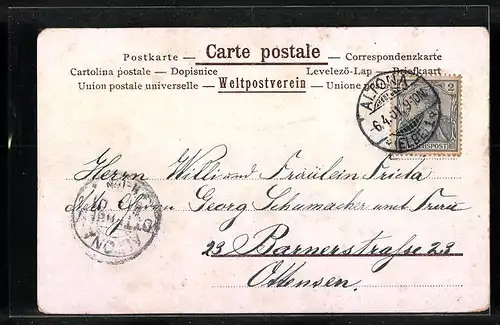 Postkarte — Carte postale — Correspondenzkarte
Cartolina postale — Dopisnice Levelezö-Lap — Briefkaart
Union postale universelle — Weltpostverein — Unione
ALTONA
6.4.01.9-10N
(ELBE) 1
2
Herrn Willi und Fräulein Frida
Georg Schumacher und Frau
23 Barnerstraße 23
Ottensen.
ALTONA
OTTENSEN